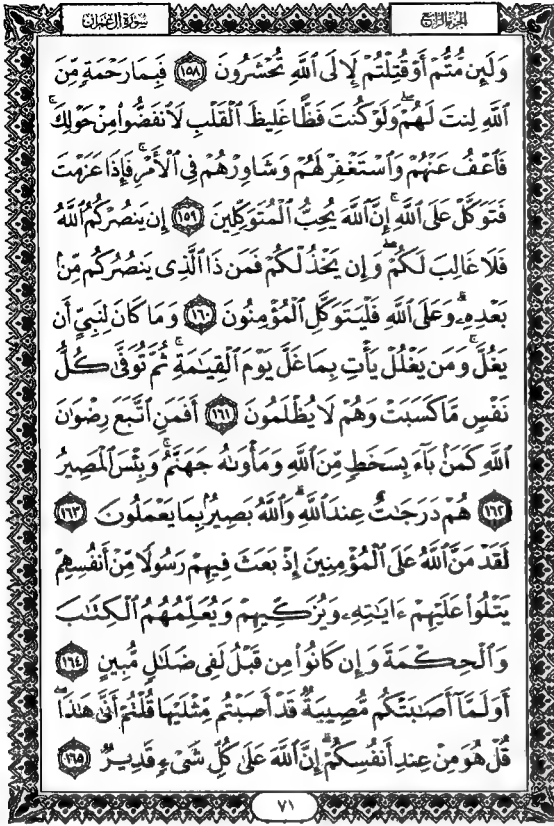 سُورَةُ آلِ عِمْرَانَ
الجزء الرابع
وَلَئِن مُّتُّمْ أَوْ قُتِلْتُمْ لَإِلَى ٱللَّهِ تُحْشَرُونَ ١٥٨ فَبِمَا رَحْمَةٍ مِّنَ
ٱللَّهِ لِنتَ لَهُمْ ۖ وَلَوْ كُنتَ فَظًّا غَلِيظَ ٱلْقَلْبِ لَٱنفَضُّوا۟ مِنْ حَوْلِكَ ۖ
فَٱعْفُ عَنْهُمْ وَٱسْتَغْفِرْ لَهُمْ وَشَاوِرْهُمْ فِى ٱلْأَمْرِ ۖ فَإِذَا عَزَمْتَ
فَتَوَكَّلْ عَلَى ٱللَّهِ ۚ إِنَّ ٱللَّهَ يُحِبُّ ٱلْمُتَوَكِّلِينَ ١٥٩ إِن يَنصُرْكُمُ ٱللَّهُ
فَلَا غَالِبَ لَكُمْ ۖ وَإِن يَخْذُلْكُمْ فَمَن ذَا ٱلَّذِى يَنصُرُكُم مِّنۢ
بَعْدِهِۦ ۗ وَعَلَى ٱللَّهِ فَلْيَتَوَكَّلِ ٱلْمُؤْمِنُونَ ١٦٠ وَمَا كَانَ لِنَبِىٍّ أَن
يَغُلَّ ۚ وَمَن يَغْلُلْ يَأْتِ بِمَا غَلَّ يَوْمَ ٱلْقِيَٰمَةِ ۚ ثُمَّ تُوَفَّىٰ كُلُّ
نَفْسٍ مَّا كَسَبَتْ وَهُمْ لَا يُظْلَمُونَ ١٦١ أَفَمَنِ ٱتَّبَعَ رِضْوَٰنَ
ٱللَّهِ كَمَنۢ بَآءَ بِسَخَطٍ مِّنَ ٱللَّهِ وَمَأْوَىٰهُ جَهَنَّمُ ۚ وَبِئْسَ ٱلْمَصِيرُ
١٦٢ هُمْ دَرَجَٰتٌ عِندَ ٱللَّهِ ۗ وَٱللَّهُ بَصِيرٌۢ بِمَا يَعْمَلُونَ ١٦٣
لَقَدْ مَنَّ ٱللَّهُ عَلَى ٱلْمُؤْمِنِينَ إِذْ بَعَثَ فِيهِمْ رَسُولًا مِّنْ أَنفُسِهِمْ
يَتْلُوا۟ عَلَيْهِمْ ءَايَٰتِهِۦ وَيُزَكِّيهِمْ وَيُعَلِّمُهُمُ ٱلْكِتَٰبَ
وَٱلْحِكْمَةَ وَإِن كَانُوا۟ مِن قَبْلُ لَفِى ضَلَٰلٍ مُّبِينٍ ١٦٤
أَوَلَمَّآ أَصَٰبَتْكُم مُّصِيبَةٌ قَدْ أَصَبْتُم مِّثْلَيْهَا قُلْتُمْ أَنَّىٰ هَٰذَا ۖ
قُلْ هُوَ مِنْ عِندِ أَنفُسِكُمْ ۗ إِنَّ ٱللَّهَ عَلَىٰ كُلِّ شَىْءٍ قَدِيرٌ ١٦٥
٧١